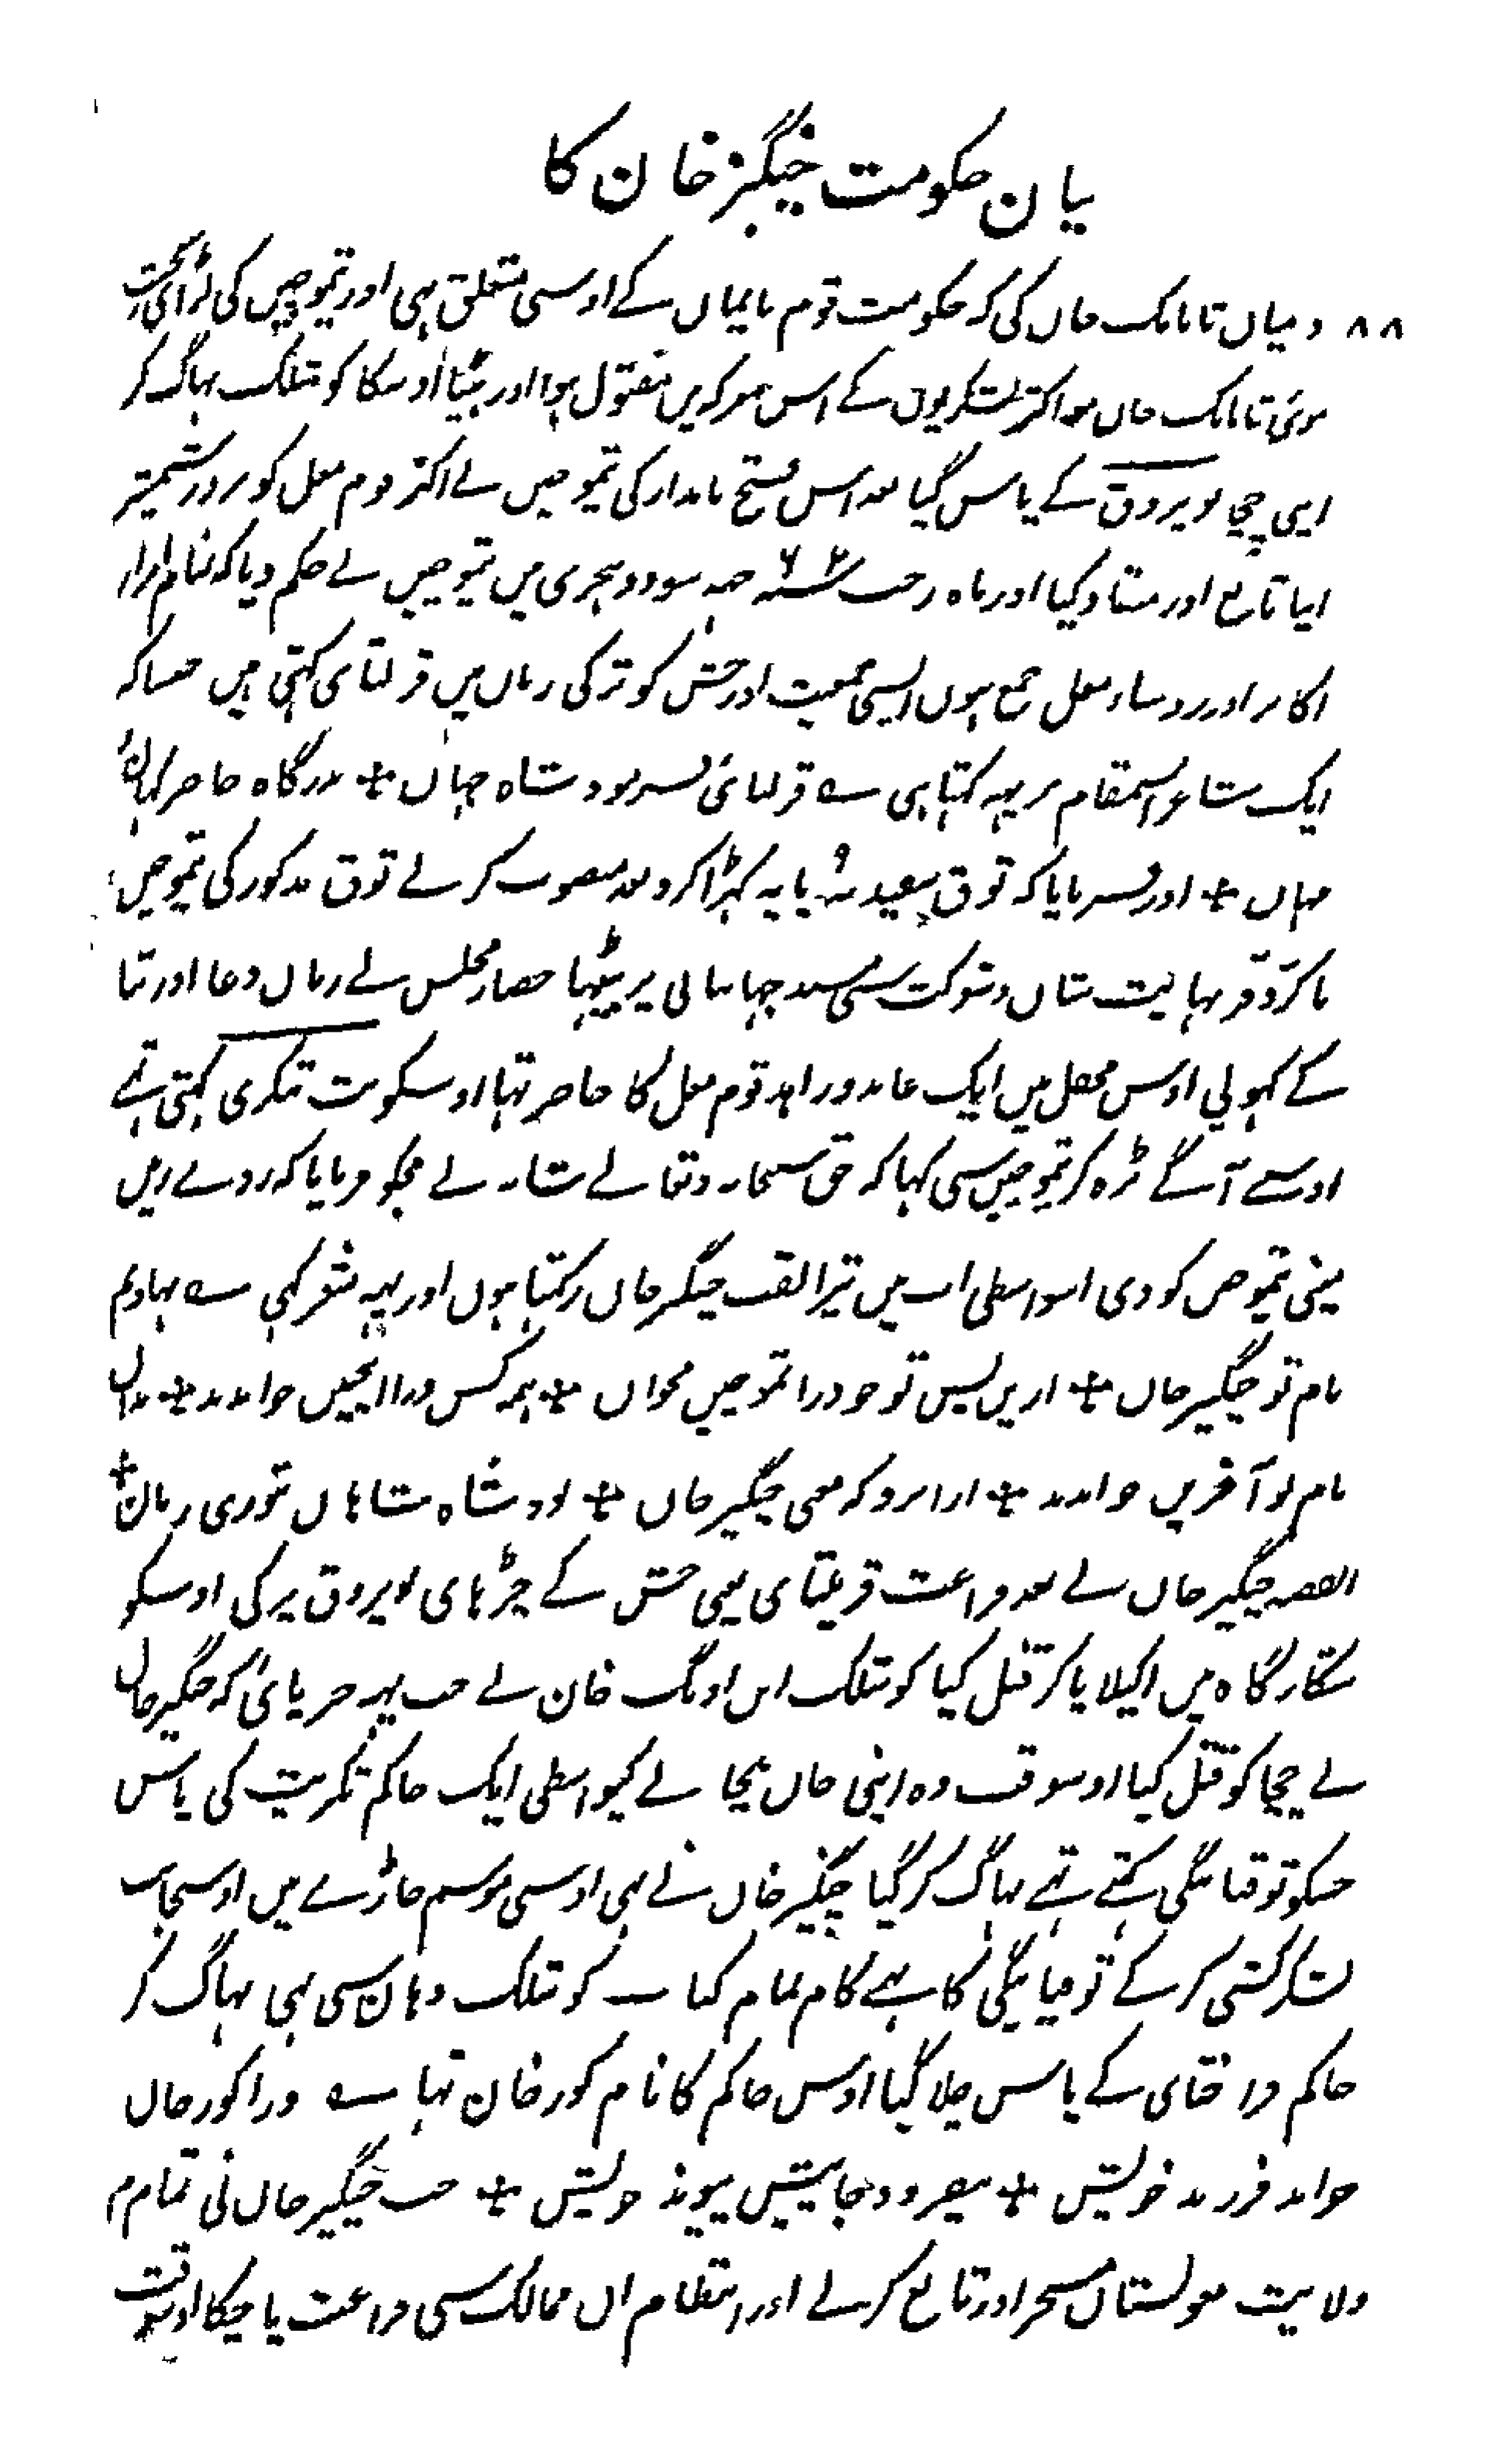 بیان حکومت چنگیز خان کا
۸۸ درمیان تایانک خان کی کہ حکومت قوم نایمان کے اوسی متعلق ہی اور تموچین کی لڑائی سخت
ہوئی تایانک خان معہ اکثر لشکریوں کے اس معرکہ میں مقتول ہوا اور بیٹا اوسکا کوشلک بہاگ کر
اپنی چچا بویروق کے پاس گیا بعد اس فتح نامدار کی تموچین نے اکثر قوم مغل کو بزور شمشیر
اپنا تابع اور منقاد کیا اور ماہ رجب سنہ ۶۰۲ چہہ سو دو ہجری میں تموچین نے حکم دیا کہ تمام امرا
اکابر اور روساء مغل جمع ہوں ایسی جمعیت اور جشن کو ترکی زبان میں قرلتای کہتی ہیں جیسا کہ
ایک شاعر اسمقام پر یہہ کہتا ہی ؎ قرلتائی فرمود شاہ جہاں ٭ بدرگاہ حاضر کہان
مہاں ٭ اور فرمایا کہ توق سفید نہ ۹ پایہ کہڑا کرو بعد منصوب کرنے توق مذکور کی تموچین
با کروفر نہایت شان و شوکت سی مسند جہانبانی پر بیٹہا حضار مجلس نے زبان دعا اور ثنا
کے کہولی اوس محفل میں ایک عابد و زاہد قوم مغل کا حاضر تہا اوسکو بت تنکری کہتی تہے
اوسنے آگے بڑہ کر تموچین سی کہا کہ حق سبحانہ و تعالے شانہ نے مجکو فرمایا کہ روے زمین
مینی تموچین کو دی اسواسطی اب میں تیرا لقب چنگیز خان رکہتا ہوں اور یہہ شعر کہی ؎ نہادیم
نام تو چنگیز خان ٭ ازین پس تو خود را تموچین مخوان ٭ ہمہ کس ورا اینچنین خواندند ٭ بدان
نام نو آفرین خواندند ٭ ازانرو کہ معنی چنگیز خان ٭ بود شاہ شاہان توری زبان ٭
القصہ چنگیز خان نے بعد فراغت قریلتای یعنی جشن کے چڑہای بویروق پر کی اوسکو
شکارگاہ میں اکیلا پا کر قتل کیا کوشلک ابن اونگ خان نے جب یہہ خبر پائی کہ چنگیز خان
نے چچا کو قتل کیا اوسوقت وہ اپنی جان بچانے کیواسطی ایک حاکم تکریت کی پاس
جسکو توقتابیگی کہتے تہے بہاگ کر گیا چنگیز خان نے بہی اوسی موسم جاڑے میں اوسجانب
لشکر کشی کر کے توقیابیگی کا بہی کام تمام کیا ؎ کوشلک وہان سی بہی بہاگ کر
حاکم قراختای کے پاس چلا گیا اوس حاکم کا نام کورخان تہا ؎ ورا کورخان
خواند فرزند خویش ٭ بیفزود جانیش پیوند خویش ٭ جب چنگیز خان نی تمام
ولایت مغولستان مسخر اور تابع کرلے اور انتظام ان ممالک سی فراغت پا چکا اوسوقت